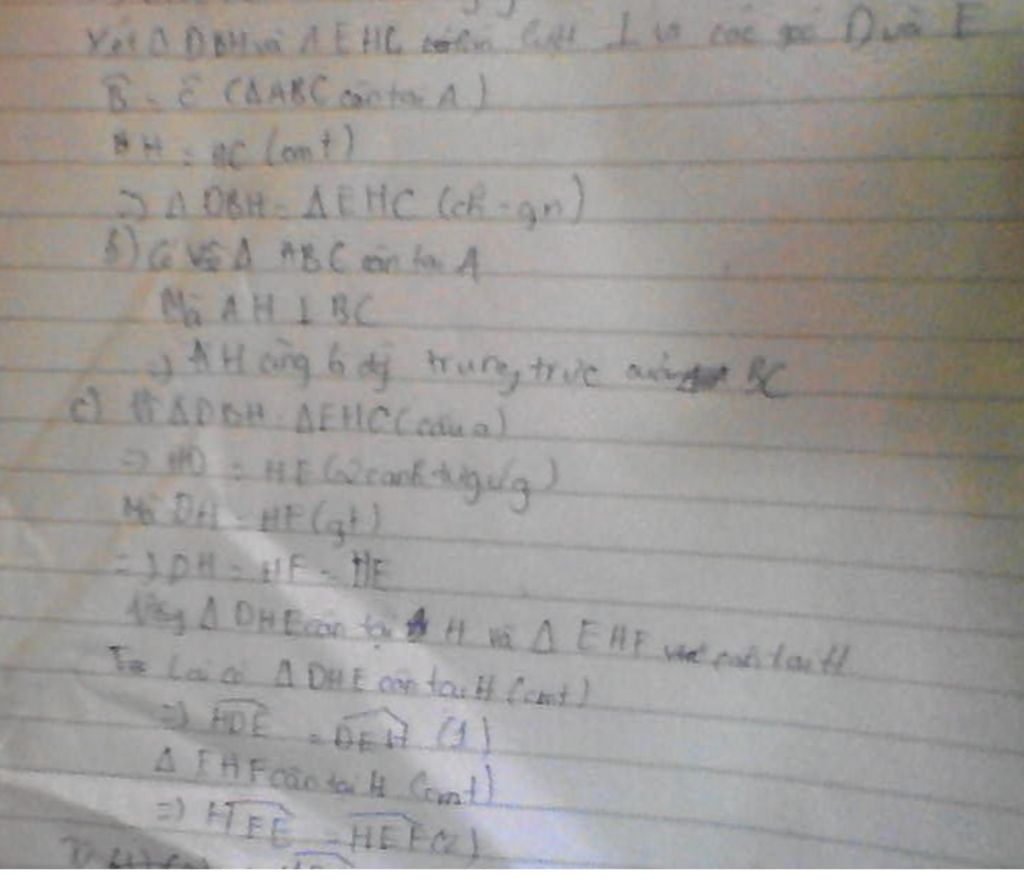 Xét Δ DBH và Δ EHC lần lượt ⊥ D và E
B = C (ΔABC cân tại A)
BH = HC (cmt)
=> Δ DBH = Δ EHC (ch - gn)
b) Δ ABC cân tại A
Mà AH ⊥ BC
=> AH cũng là đg trung trực BC
c) ΔDBH = ΔEHC (câu a)
=> HD = HE (2 cạnh tg ứng)
Mà DH = HF (gt)
=> DH = HF = HE
Vậy Δ DHE cân tại H và Δ EHF cân tại H
Ta lại có Δ DHE cân tại H (cmt)
=> HDE = DEH (1)
Δ EHF cân tại H (cmt)
=> HFE = HEF (2)